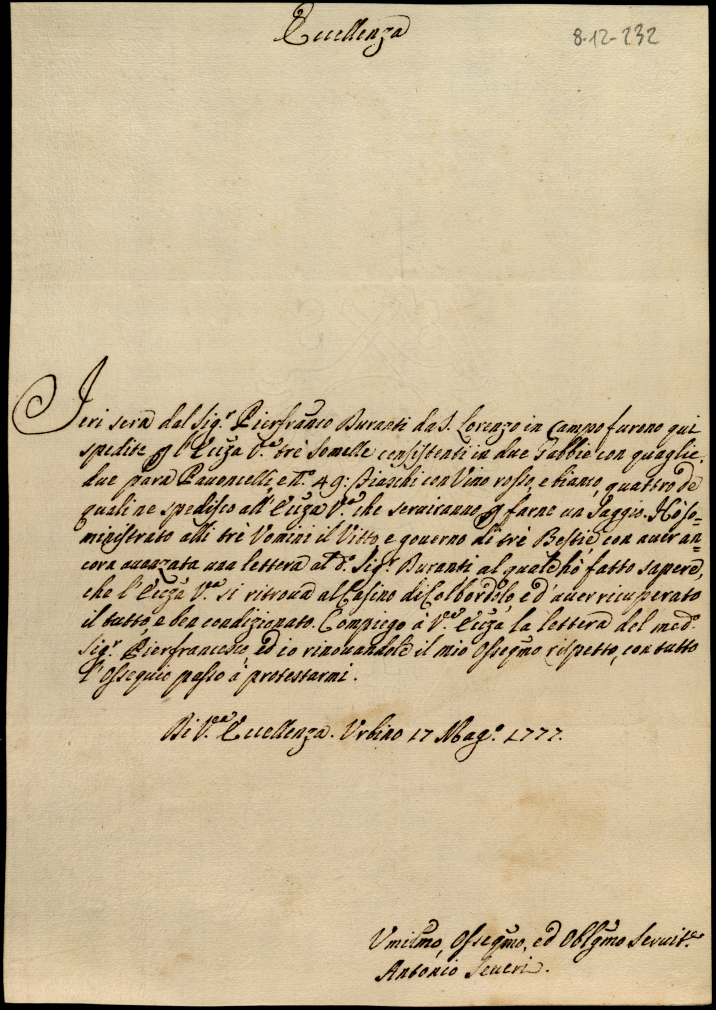 Eccellenza
8-12-232
Ieri sera dal Sig.r Pierfranco Buranti da S. Lorenzo in Campo furono qui
spedite p l'Ecc̃za V.a trè Somelle consistenti in due Gabbie con quaglie,
due para Pavoncelli, e N.o 49: fiaschi con Vino rosso, e bianco, quattro de
quali ne spedisco all'Ecc̃za V.a che serviranno p farne un saggio. Hò so=
ministrato alli trè Uomini il Vitto, e governo di trè Bestie con aver an=
cora avanzata una lettera al d.o Sig.r Buranti al quale hò fatto sapere,
che l'Ecc̃za V.a si ritrova al Casino di Colbordolo, ed aver ricuperato
il tutto e ben condizionato. Compiego à V.ra Ecc̃za la lettera del med.o
Sig.r Pierfrancesco ed io rinovandole il mio Osseqm̃o rispetto, con tutto
l'Ossequio passo à protestarmi.
Di V.ra Eccellenza. Urbino 17 Mag.o 1777.
Umilm̃o, Osseqm̃o, ed Oblg̃mo Servit.re
Antonio Severi.